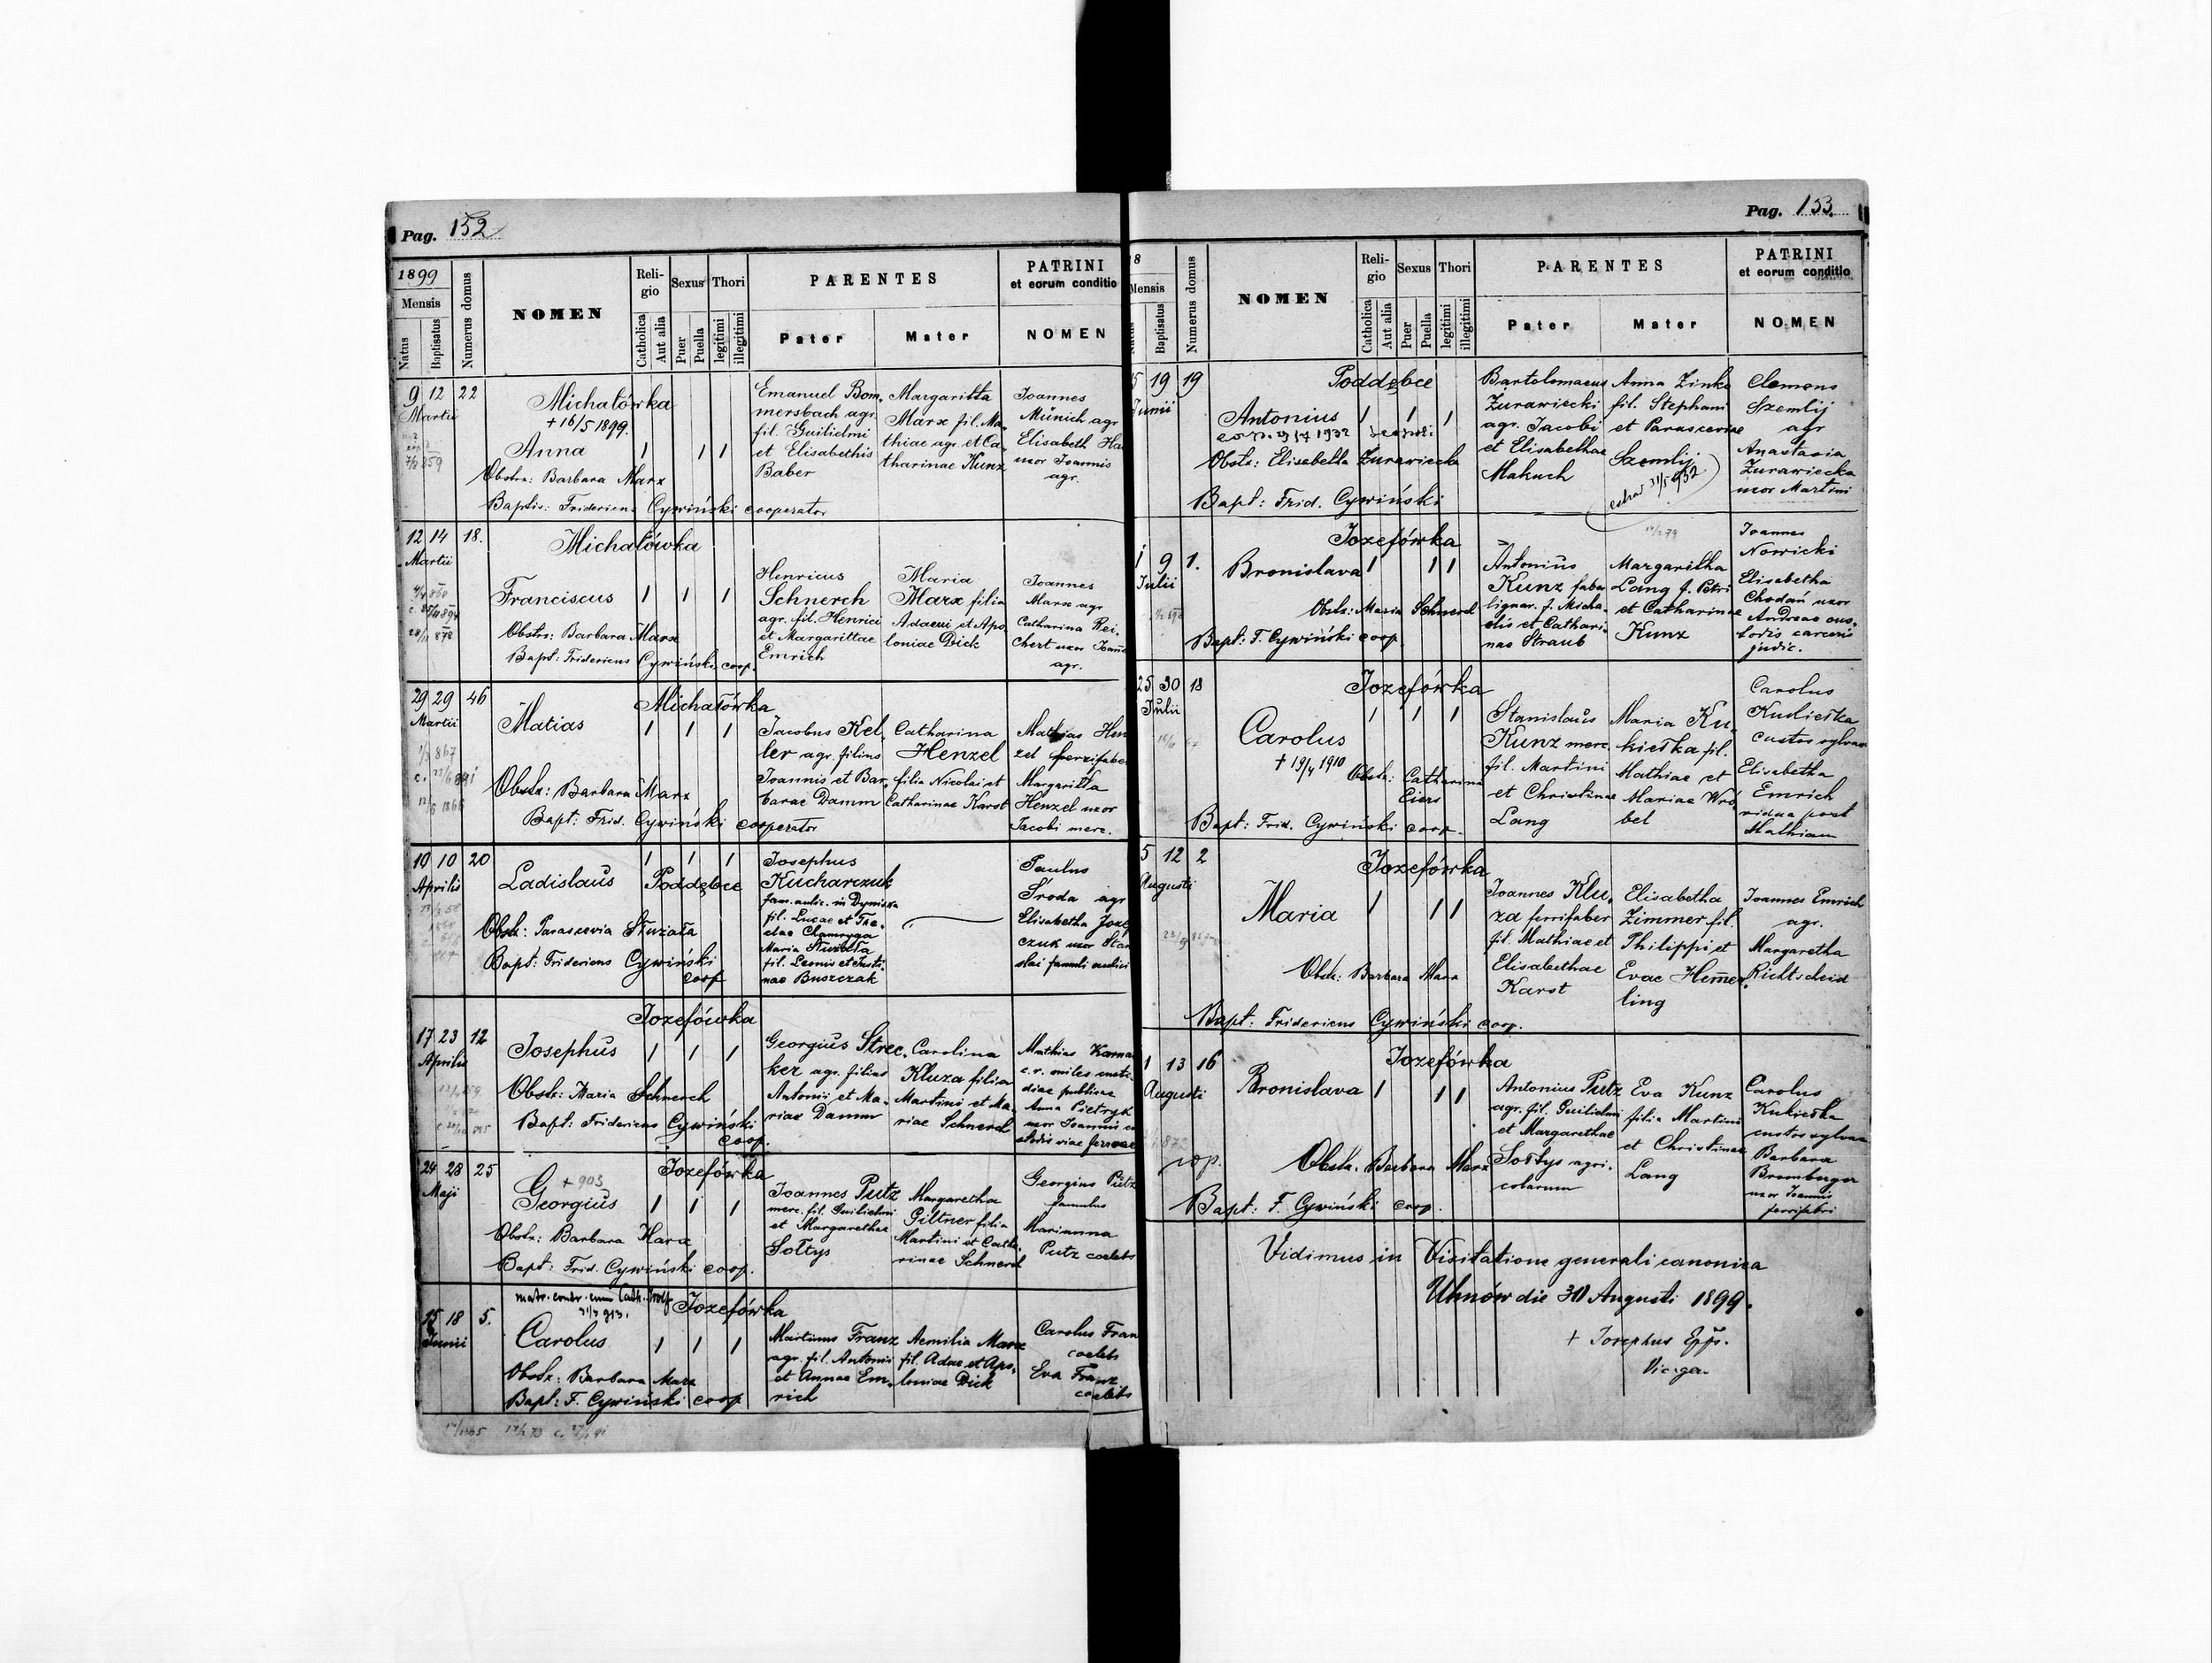 Pag. 152
1899
Mensis
Natus
Baptisatus
Numerus domus
NOMEN
Reli-
gio
Catholica
Aut alia
Sexus
Puer
Puella
Thori
legitimi
illegitimi
PARENTES
Pater
Mater
PATRINI
et eorum conditio
NOMEN
9 12 22
Martii
Michałówka
+ 16/5 1899.
Anna
Obstr: Barbara Marx
Baptis: Fridericus Cywiński cooperator
Emanuel Bom-
mersbach agr.
fil. Guilielmi
et Elisabethis
Baber
Margaritta
Marx fil. Ma-
thiae agr. et Ca-
tharinae Kunz
Joannes
Münich agr
Elisabeth
uxor Joannis
agr.
12 14 18.
Martii
Michałówka
Franciscus
Obstr: Barbara Marx
Bapt: Fridericus Cywiński coop.
Henricus
Schnerch
agr. fil. Henrici
et Margarittae
Emrich
Maria
Marx filia
Adami et Apo
loniae Dick
Joannes
Marx agr
Catharina Rei-
chert uxor
agr.
29 29 46
Martii
Michałówka
Matias
Obstr: Barbara Marx
Bapt: Frid. Cywiński cooperator
Jacobus Kel-
ler agr. filius
Joannis et Bar-
barae Damm
Catharina
Henzel
filia Nicolai et
Catharinae Karst
Mathias Hen
zel
Margaritta
Henzel uxor
Jacobi merc.
10 10 20
Aprilis
Poddębce
Ladislaus
Obstr: Parascevia
Bapt: Fridericus Cywiński
coop
Josephus
Kucharczuk
fam. aulic. in
fil. Lucae et The-
clae
Maria
fil. Leonis et Justi-
nae Buszczak
Paulus
Środa agr
Elisabetha
czuk uxor
slai famuli aulici
17 23 12
Aprilis
Jozefówka
Josephus
Obstr: Maria Schnerch
Bapt: Fridericus Cywiński
coop.
Georgius Strec-
ker agr. filius
Antonii et Ma-
riae Damm
Carolina
Kluza filia
Martini et Ma-
riae Schnerch
Mathias
miles
diae publicae
Anna Pietryk
uxor Joannis
viae ferreae
24 28 25
Maji
Jozefówka
+ 903
Georgius
Obstr: Barbara Marx
Bapt: Frid. Cywiński coop.
Joannes Putz
merc. fil. Guilielmi
et Margarethae
Sołtys
Margaretha
Giltner filia
Martini et Catha-
rinae Schnerch
Georgius Putz
famulus
Marianna
Putz coelebs
matr. contr. cum Cath.
913.
15 18 5.
Junii
Jozefówka
Carolus
Obstr: Barbara Marx
Bapt: F. Cywiński coop
Martinus Franz
agr. fil. Antonii
et Annae Em-
rich
Aemilia Marx
fil. Adae et Apo-
loniae Dick
Carolus Fran
coelebs
Eva Franz
coelebs
Pag. 153
18
Mensis
Natus
Baptisatus
Numerus domus
NOMEN
Reli-
gio
Catholica
Aut alia
Sexus
Puer
Puella
Thori
legitimi
illegitimi
PARENTES
Pater
Mater
PATRINI
et eorum conditio
NOMEN
5 19 19
Junii
Poddębce
Antonius
Obstr: Elisabetha Żurawiecka
Bapt: Frid. Cywiński
Bartolomaeus
Żurawiecki
agr. Jacobi
et Elisabethae
Makuch
Anna Zinko
fil. Stephani
et Parasceviae
Szemlij
Clemens
Szemlij
agr
Anastasia
Żurawiecka
uxor Martini
1 9 1.
Julii
Jozefówka
Bronislava
Obstr: Maria Schnerch
Bapt: F. Cywiński coop.
Antonius
Kunz faber
lignar. f. Micha-
elis et Cathari-
nae Straub
Margaritha
Lang f. Petri
et Catharinae
Kunz
Joannes
Nowicki
Elisabetha
Chodań uxor
Andreae cus-
todis carceris
judic.
25 30 18
Julii
Jozefówka
Carolus
+ 19/4 1910
Obstr: Catharina
Eiers
Bapt: Frid. Cywiński coop.
Stanislaus
Kunz merc.
fil. Martini
et Christinae
Lang
Maria Ku-
kiełka fil.
Mathiae et
Mariae Wró
bel
Carolus
Kukiełka
custos sylvae
Elisabetha
Emrich
vidua post
Mathiam
5 12 2
Augusti
Jozefówka
Maria
Obstr: Barbara Marx
Bapt: Fridericus Cywiński coop.
Joannes Klu-
za ferrifaber
fil. Mathiae et
Elisabethae
Karst
Elisabetha
Zimmer fil.
Philippi et
Evae Hemer-
ling
Joannes Emrich
agr.
Margaretha
Richtscheid
1 13 16
Augusti
Jozefówka
Bronislava
Obstr. Barbara Marx
Bapt: F. Cywiński coop.
Antonius Putz
agr. fil. Guilielmi
et Margarethae
Sołtys agri-
colarum
Eva Kunz
filia Martini
et Christinae
Lang
Carolus
Kukiełka
custos sylvae
Barbara
Bromberger
uxor Joannis
ferrifabri
Vidimus in Visitatione generali canonica
Uhnów die 30 Augusti 1899.
+ Josephus Epps.
Vic. gen.